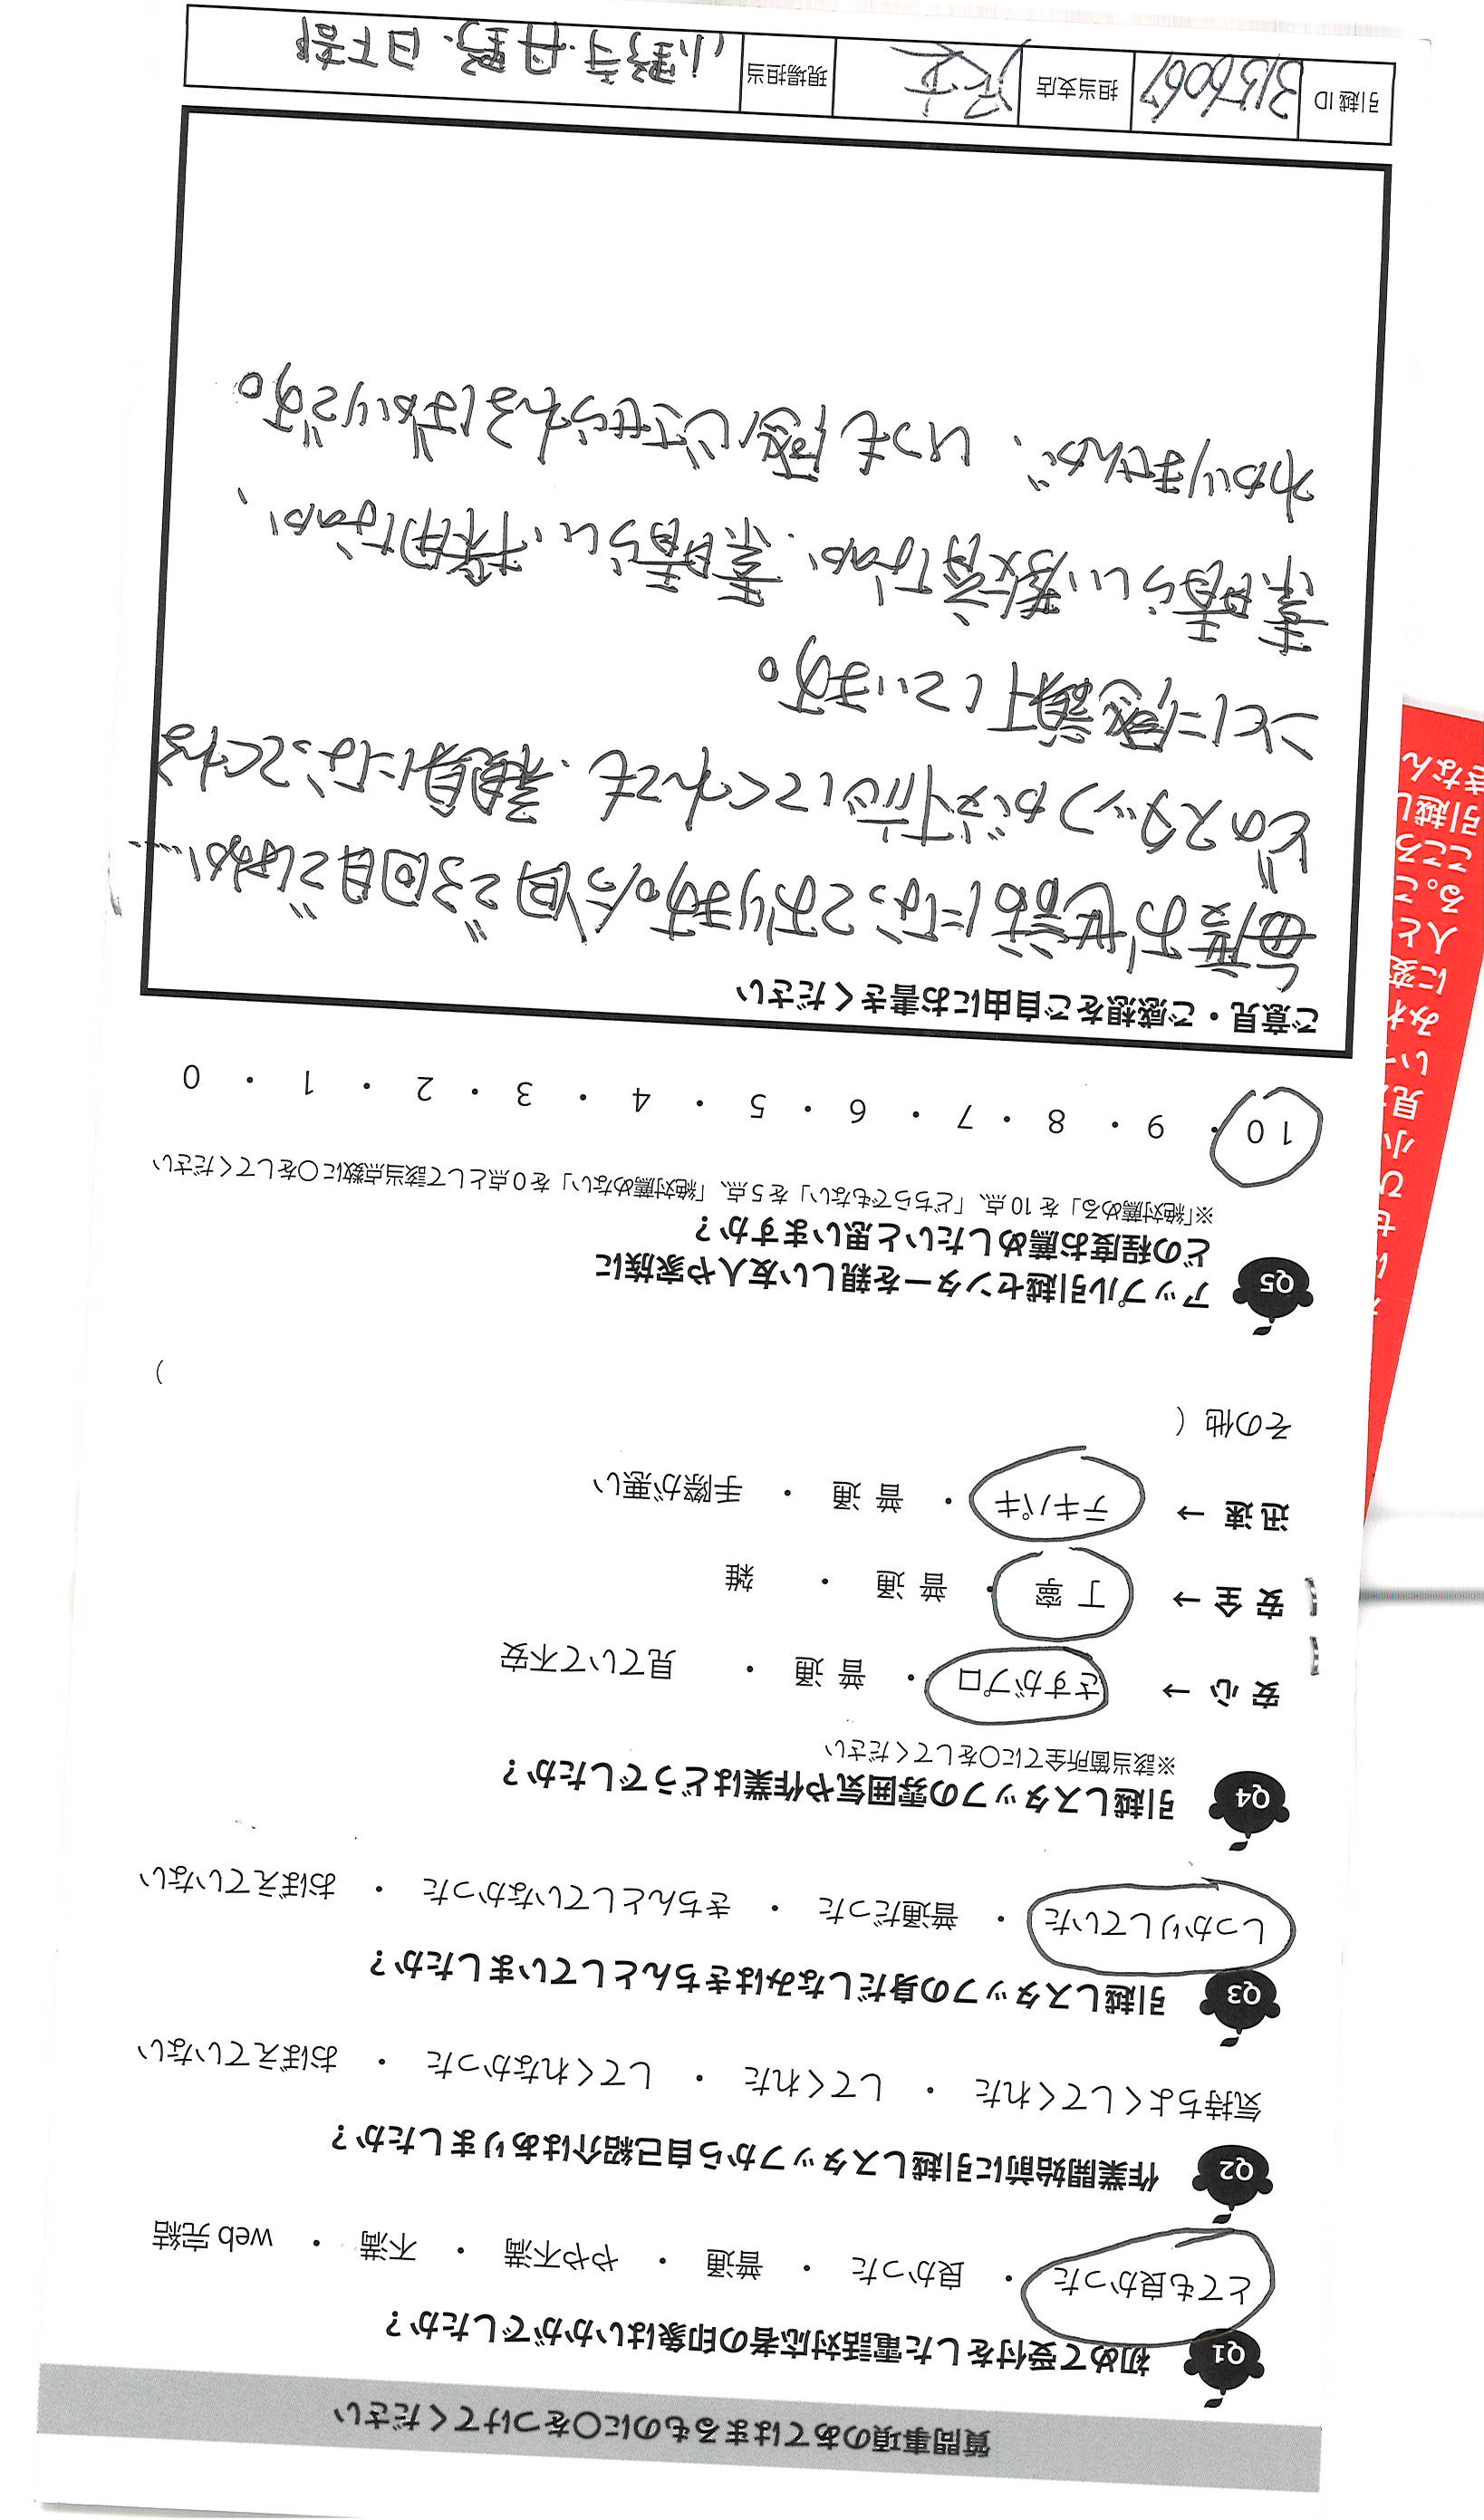 質問事項のあてはまるものに〇をつけてください
Q1 初めて受付をした電話対応者の印象はいかがでしたか？
とても良かった ・ 良かった ・ 普通 ・ やや不満 ・ 不満 ・ web 完結
Q2 作業開始前に引越しスタッフから自己紹介はありましたか？
気持ちよくしてくれた ・ してくれた ・ してくれなかった ・ おぼえていない
Q3 引越しスタッフの身だしなみはきちんとしていましたか？
しっかりしていた ・ 普通だった ・ きちんとしていなかった ・ おぼえていない
Q4 引越しスタッフの雰囲気や作業はどうでしたか？
※該当箇所全てに〇をしてください
安 心 → さすがプロ ・ 普 通 ・ 見ていて不安
安 全 → 丁 寧 ・ 普 通 ・ 雑
迅 速 → テキパキ ・ 普 通 ・ 手際が悪い
その他（ ）
Q5 アップル引越センターを親しい友人や家族に
どの程度お薦めしたいと思いますか？
※「絶対薦める」を 10 点、「どちらでもない」を 5 点、「絶対薦めない」を 0 点として該当点数に〇をしてください
10 ・ 9 ・ 8 ・ 7 ・ 6 ・ 5 ・ 4 ・ 3 ・ 2 ・ 1 ・ 0
ご意見・ご感想をご自由にお書きください
毎度お世話になっております。今回で3回目ですが…
どのスタッフが対応してくれても、親身になってくれる
ことに感謝しています。
素晴らしい教育なのか、素晴らしい採用なのか、
わかりませんが、いつも感じさせられるばかりです。
引越 ID 3156067 担当支店 現場担当 小野寺.丹野.日下部
小 見
みれ
に変
人と
る。
こころ
引越し
きなん